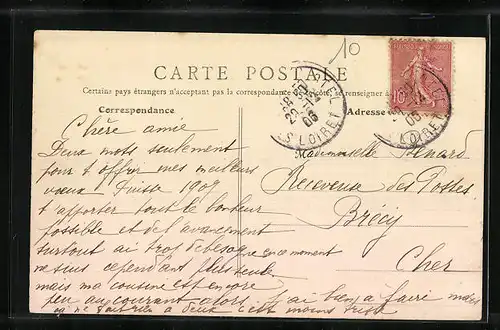 10
CARTE POSTALE
Certains pays étrangers n'acceptent pas la correspondance de ce côté, se renseigner à
Correspondance
Adresse
Chère amie
Deux mots seulement
pour t'offrir mes meilleurs
vœux Puisse 1909
t'apporter tout le bonheur
possible et de l'avancement
surtout ai trop de besogne en ce moment
ne suis cependant plus seule
mais ma cousine est encore
peu au courant alors j'ai bien à faire mais
à deux c'est moins triste
Mademoiselle
Receveuse des Postes
Brécy
Cher
LOIRET
10